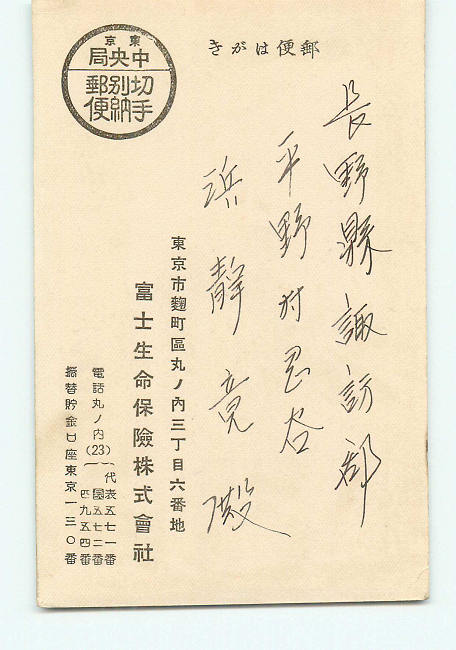 郵便はがき
東京
中央局
切手
別納
郵便
長野縣諏訪郡
平野村忍谷
浜静竟殿
東京市麴町區丸ノ內三丁目六番地
富士生命保險株式會社
電話丸ノ內(23)
代表五七一番
五七二番
四九五四番
振替貯金口座東京一三〇番